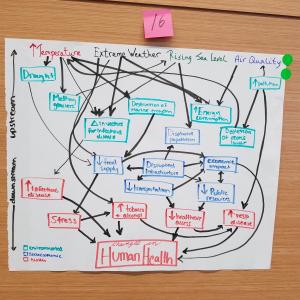 16
↑Temperature Extreme Weather Rising Sea Level Air Quality
Drought
↑ Pollution
Melting
glaciers
Destruction of
marine ecosystem
↑Energy
Consumption
△
for infectious
disease
Displaced
population
Depletion of
ozone layer
↓ food
supply
Disrupted
Infrastructure
economic
impact
↓ transportation
↓ Public
resources
↑ Infectious
disease
Stress
↑ tobacco
+ alcohol
↓ healthcare
access
↑ resp
disease
changes in
Human Health
upstream
downstream
environmental
socioeconomic
health